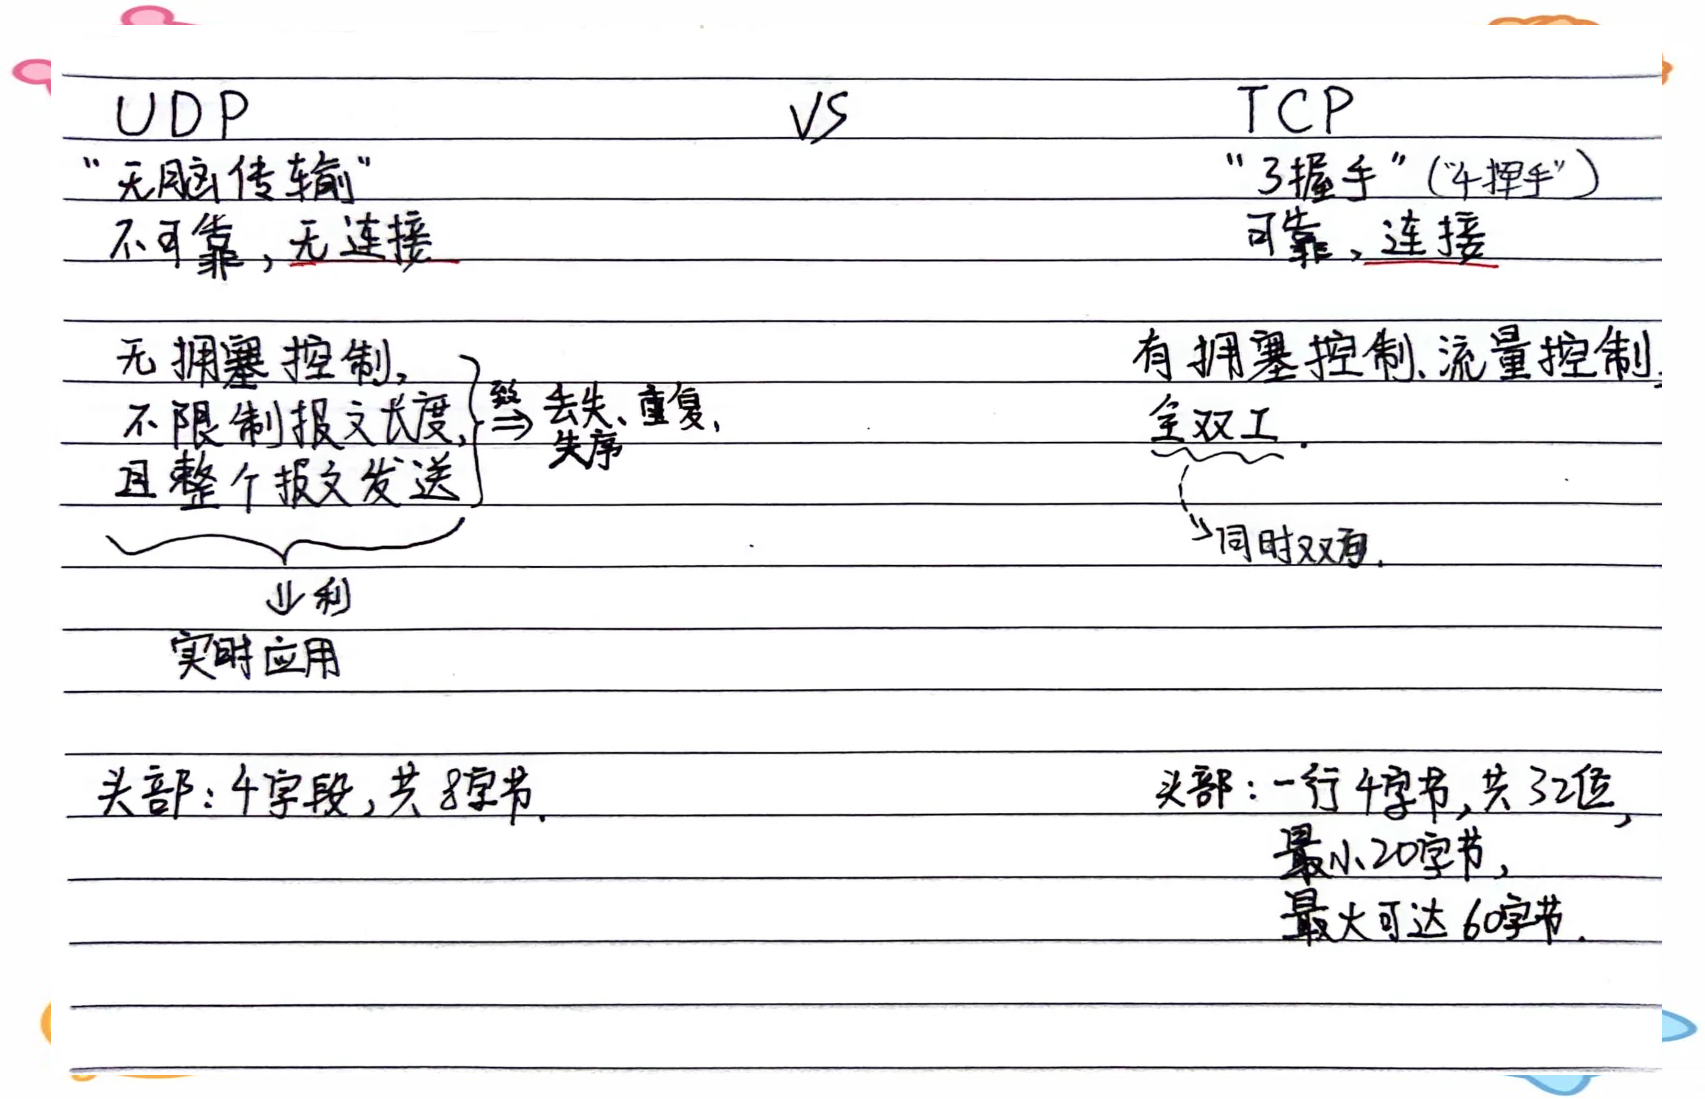 UDP VS TCP
"无脑传输" "3握手"("4挥手")
不可靠,无连接 可靠,连接
无拥塞控制, 有拥塞控制、流量控制
致
不限制报文长度, ⇒ 丢失、重复, 全双工.
失序
且整个报文发送
同时双有.
⇓利
实时应用
头部:4字段,共8字节. 头部:一行4字节,共32位,
最小20字节,
最大可达60字节.